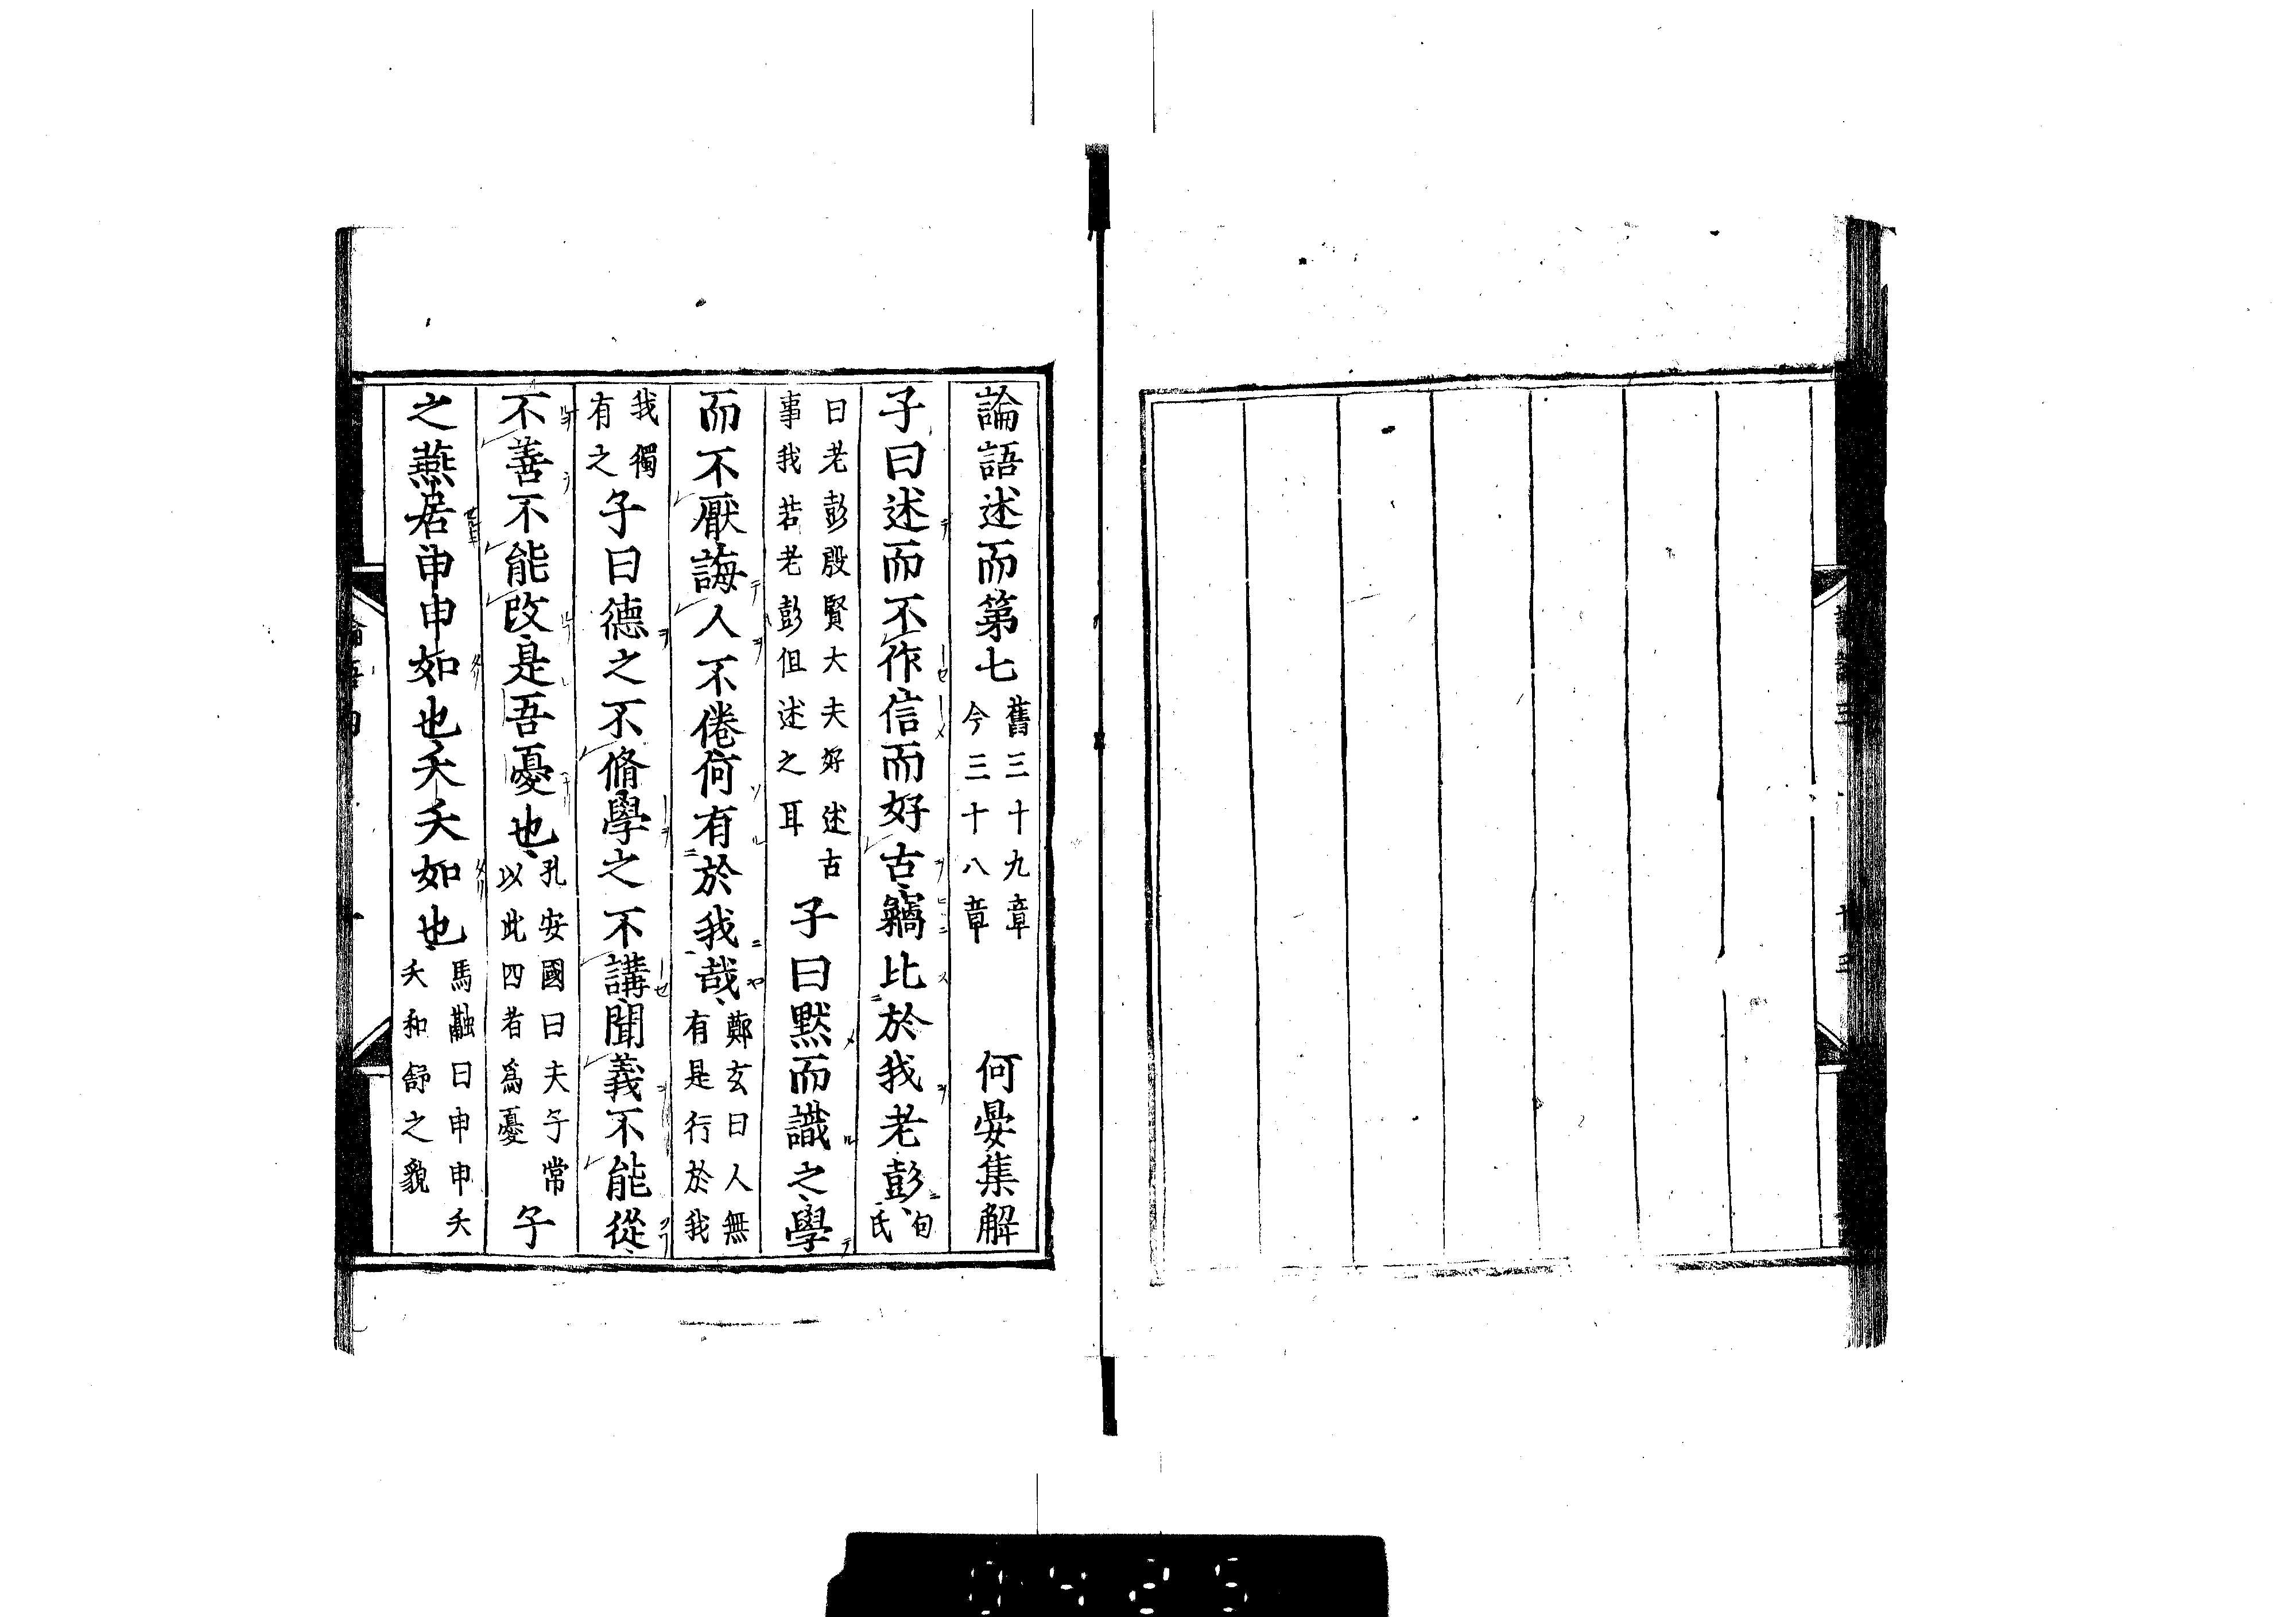 論語述而第七舊三十九章今三十八章 何晏集解
子曰述而不作信而好古竊比於我老彭包氏
曰老彭殷賢大夫好述古事我若老彭但述之耳子曰默而識之學
而不厭誨人不倦何有於我哉鄭玄曰人無有是行於我
我獨有之子曰德之不脩學之不講聞義不能從
不善不能改是吾憂也孔安國曰夫子常以此四者爲憂子
之燕居申申如也夭夭如也馬融曰申申夭夭和舒之貌
0425